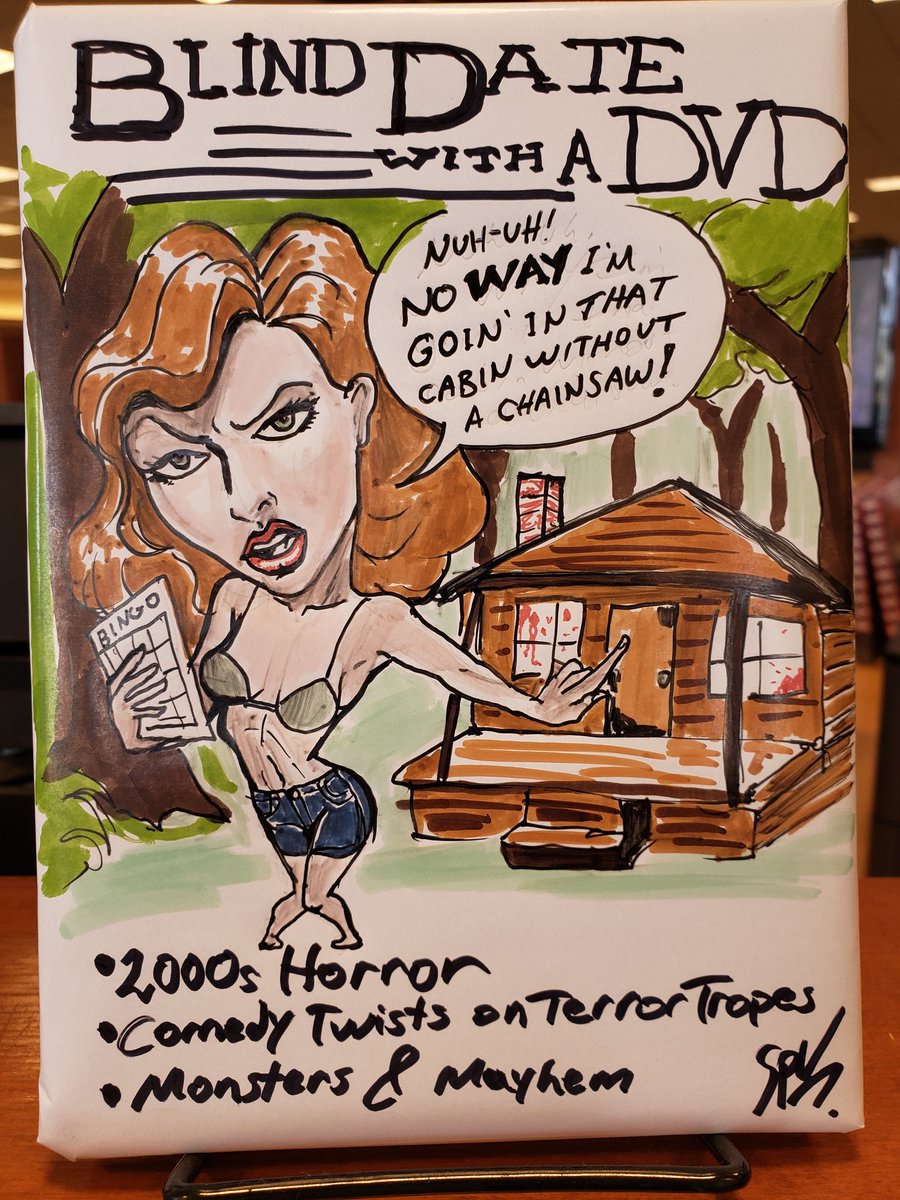 BLIND DATE
WITH A DVD
NUH-UH!
NO WAY I'M
GOIN' IN THAT
CABIN WITHOUT
A CHAINSAW!
BINGO
• 2000s Horror
• Comedy Twists on Terror Tropes
• Monsters & Mayhem